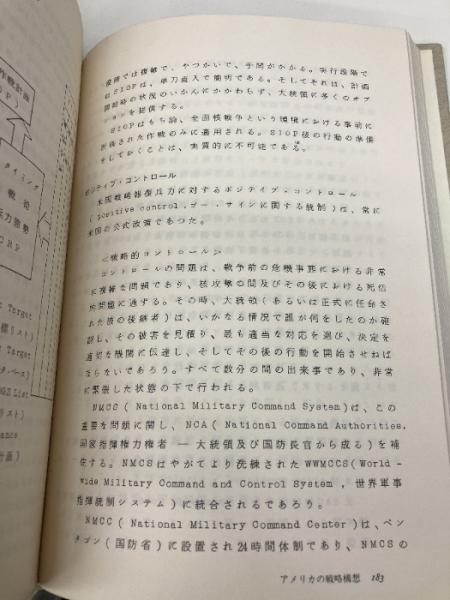 作戦計画
タイミング
戦略
Target
標リスト)
Target
タベース)
List
リスト)
計画)
段階では複雑で、やっかいで、手間がかかる。実行段階で
のSIOPは、単刀直入で簡明である。そしてそれは、計画
開始時の状況のいかんにかかわらず、大統領に多くのオプ
ションを提供する。
SIOPはもち論、全面核戦争という環境における事前に
計画された作戦のみに適用される。SIOP後の行動の準備
をしておくことは、実質的に不可能である。
ポジティブ・コントロール
米国戦略報復兵力に対するポジティブ・コントロール
( positive control ,ゴー・サインに関する統制)は、常に
米国の公式政策であつた。
<戦略的コントロール>
コントロールの問題は、戦争前の危機事態における非常
に複雑な問題であり、核攻撃の間及びその後における死信
的問題に通ずる。その時、大統領(あるいは正式に任命さ
れた彼の後継者)は、いかなる情況で誰が何をしたのか確
認し、その被害を見積り、最も適当な対応を選び、決定を
適切な機関に伝達し、そしてその後の行動を開始させねば
ならないであろう。すべて数分の間の出来事であり、非常
に緊張した状態の下で行われる。
NMCS ( National Military Command System)は、この
重要な問題に関し、NCA ( National Command Authorities,
国家指揮権力権者 ― 大統領及び国防長官から成る)を補
佐する。NMCSはやがてより洗練されたWWMCCS(World-
wide Military Command and Control System , 世界軍事
指揮統制システム)に統合されるであろう。
NMCC ( National Military Command Center)は、ペン
タゴン(国防省)に設置され24時間体制であり、NMCSの
アメリカの戦略構想 183